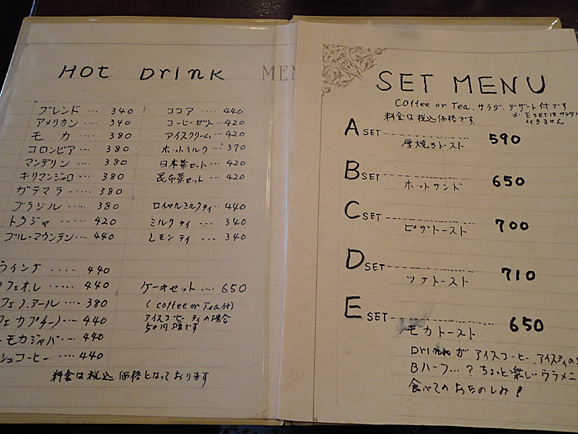 HOT DRINK
ME
ブレンド ···· 340
アメリカン ··· 340
モカ ···· 380
コロンビア ··· 380
マンデリン ··· 380
キリマンジャロ ··· 380
ガテマラ ··· 380
ブラジル ···· 380
トラジャ ···· 420
ブルーマウンテン ··· 440
ココア ··· 440
コーヒーゼリー ·· 420
アイスクリーム ·· 420
ホットミルク ·· 370
日本茶セット ··· 420
昆布茶セット ··· 420
ロイヤルミルクティ ·· 440
ミルクティ ···· 340
レモンティ ··· 340
ウインナ ····· 440
フェオレ ···· 440
フェノアール ··· 380
440
モカジャバ ··· 440
シュコーヒー ···· 440
ケーキセット ··· 650
(Coffee or Tea付)
アイスコーヒー ティの場合
50円増です
料金は税込価格となっております
SET MENU
Coffee or Tea, サラダ デザート付です
料金は税込価格です
A SET 590
厚焼きトースト
B SET 650
ホットサンド
C SET 700
ピザトースト
D SET 710
ツナトースト
E SET 650
モカトースト
Drinkが アイスコーヒー アイスティの
Bハーフ···? ちょっと楽しいウラメニ
食べてのおたのしみ!